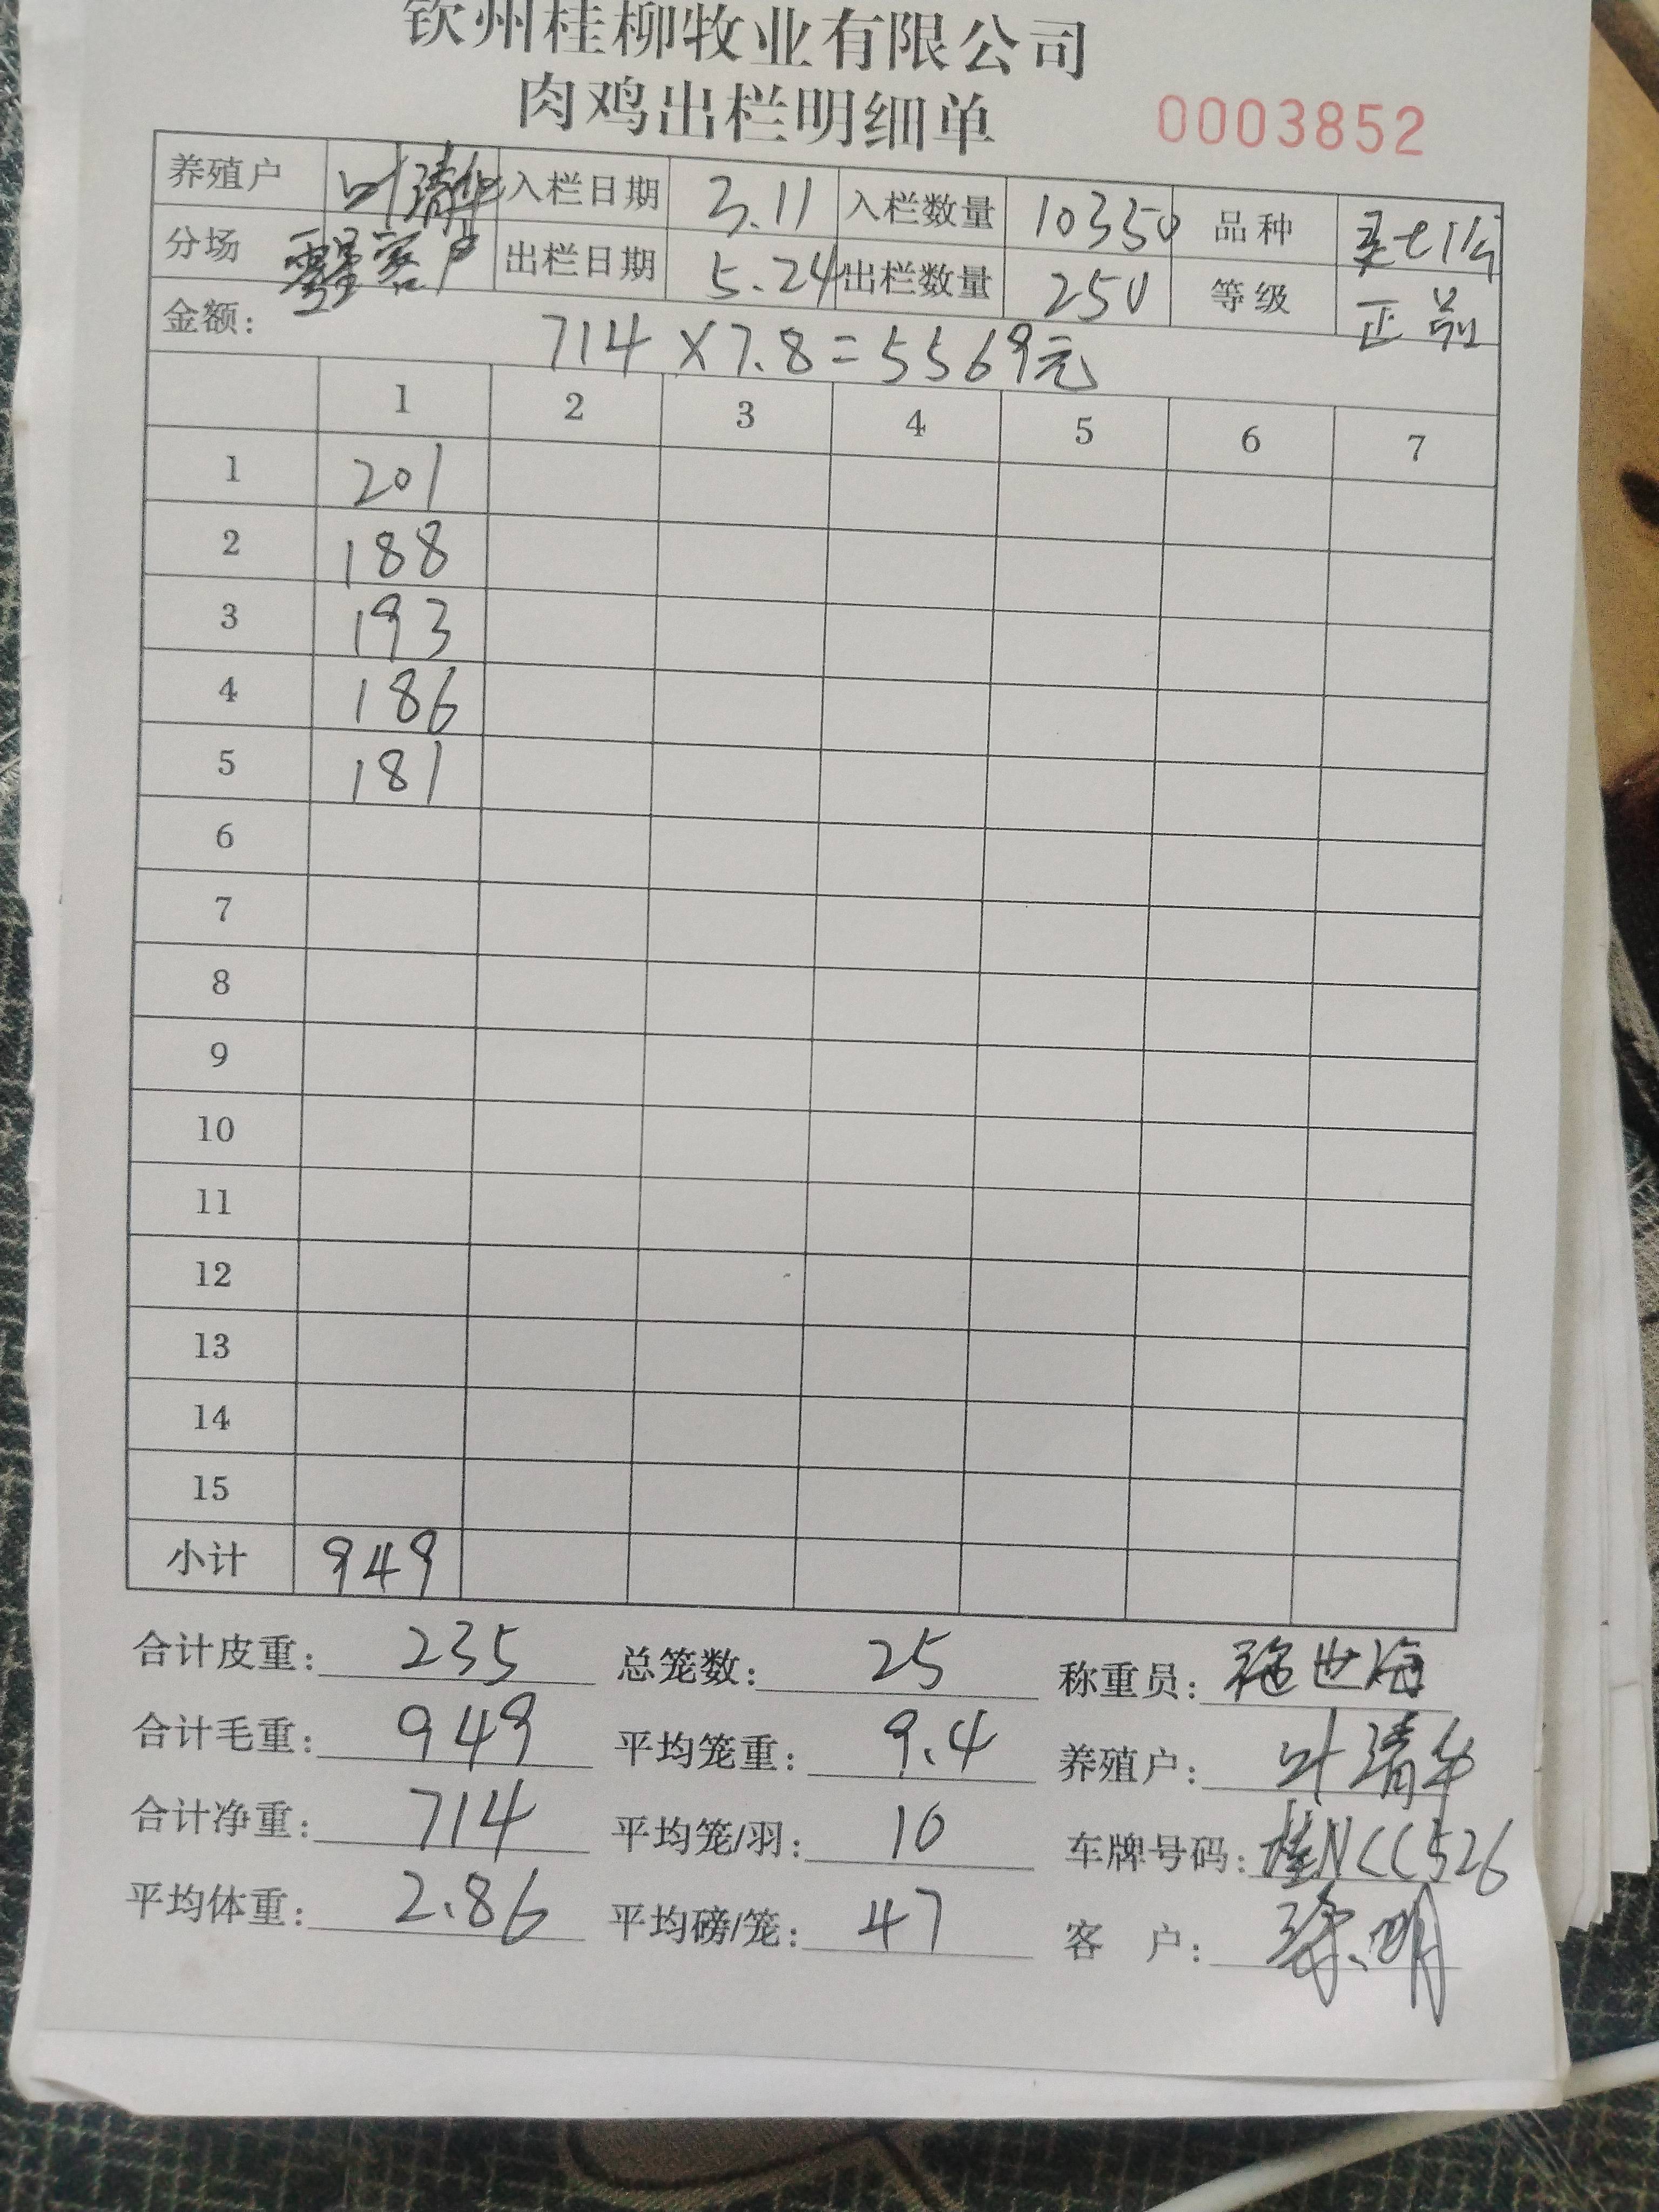 钦州桂柳牧业有限公司
肉鸡出栏明细单 0003852
养殖户 叶清华 入栏日期 3.11 入栏数量 10350 品种
分场 客户 出栏日期 5.24 出栏数量 250 等级 正品
金额: 714×7.8=5569元
1 2 3 4 5 6 7
1 201
2 188
3 193
4 186
5 181
6
7
8
9
10
11
12
13
14
15
小计 949
合计皮重: 235 总笼数: 25 称重员: 施世海
合计毛重: 949 平均笼重: 9.4 养殖户: 叶清华
合计净重: 714 平均笼/羽: 10 车牌号码: 桂NCC526
平均体重: 2.86 平均磅/笼: 47 客 户: